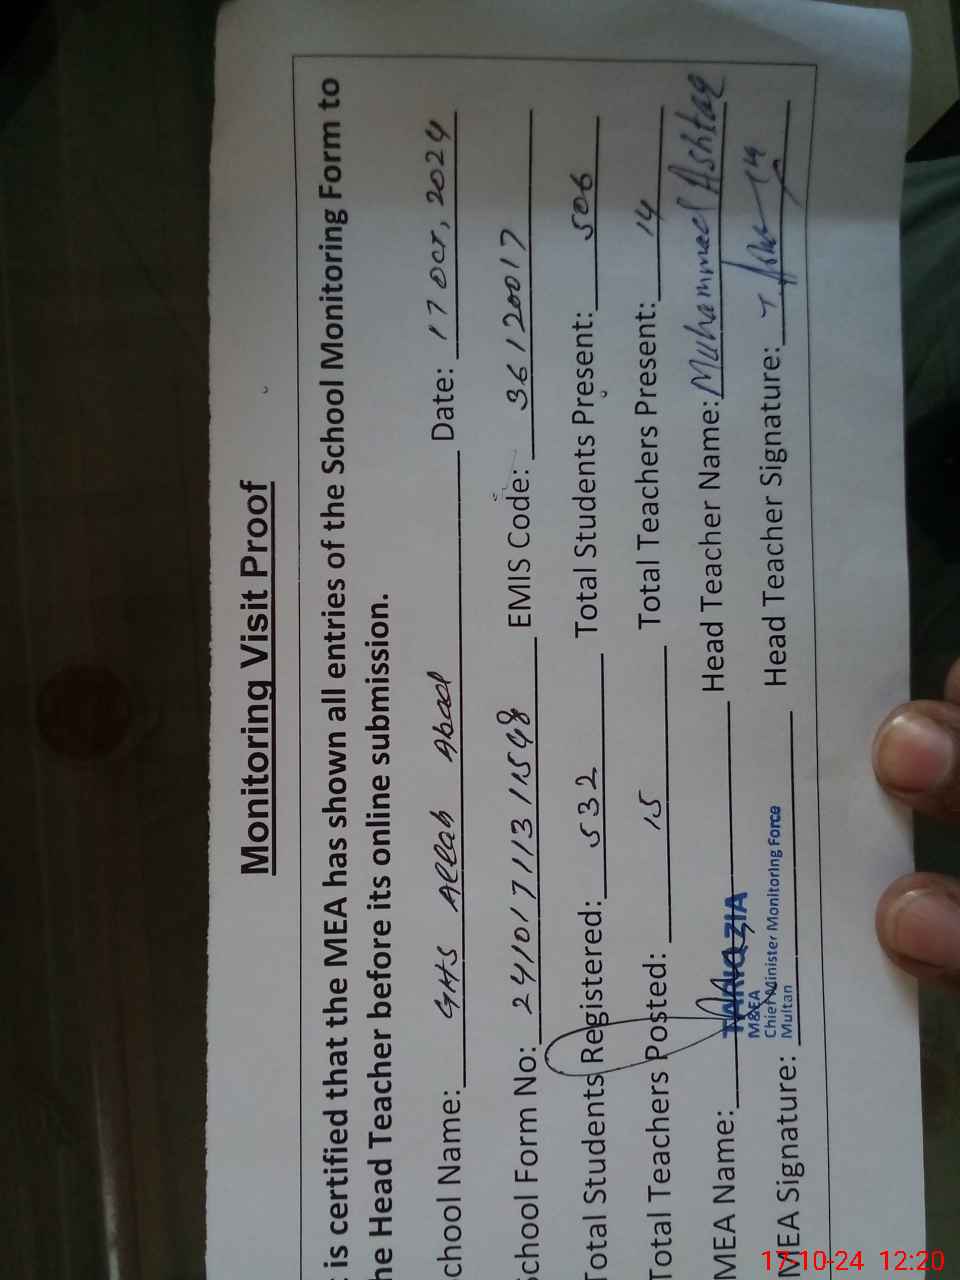 Monitoring Visit Proof
is certified that the MEA has shown all entries of the School Monitoring Form to
he Head Teacher before its online submission.
chool Name: GHS Allah Abad Date: 17 Oct, 2024
School Form No: 241017111311598 EMIS Code: 36120017
Total Students Registered: 532 Total Students Present: 506
Total Teachers Posted: 15 Total Teachers Present: 14
MEA Name: TARIQ ZIA Head Teacher Name: Muhammad Ashfaq
M&EA
Chief Minister Monitoring Force
Multan
MEA Signature: Head Teacher Signature:
17-10-24 12:20